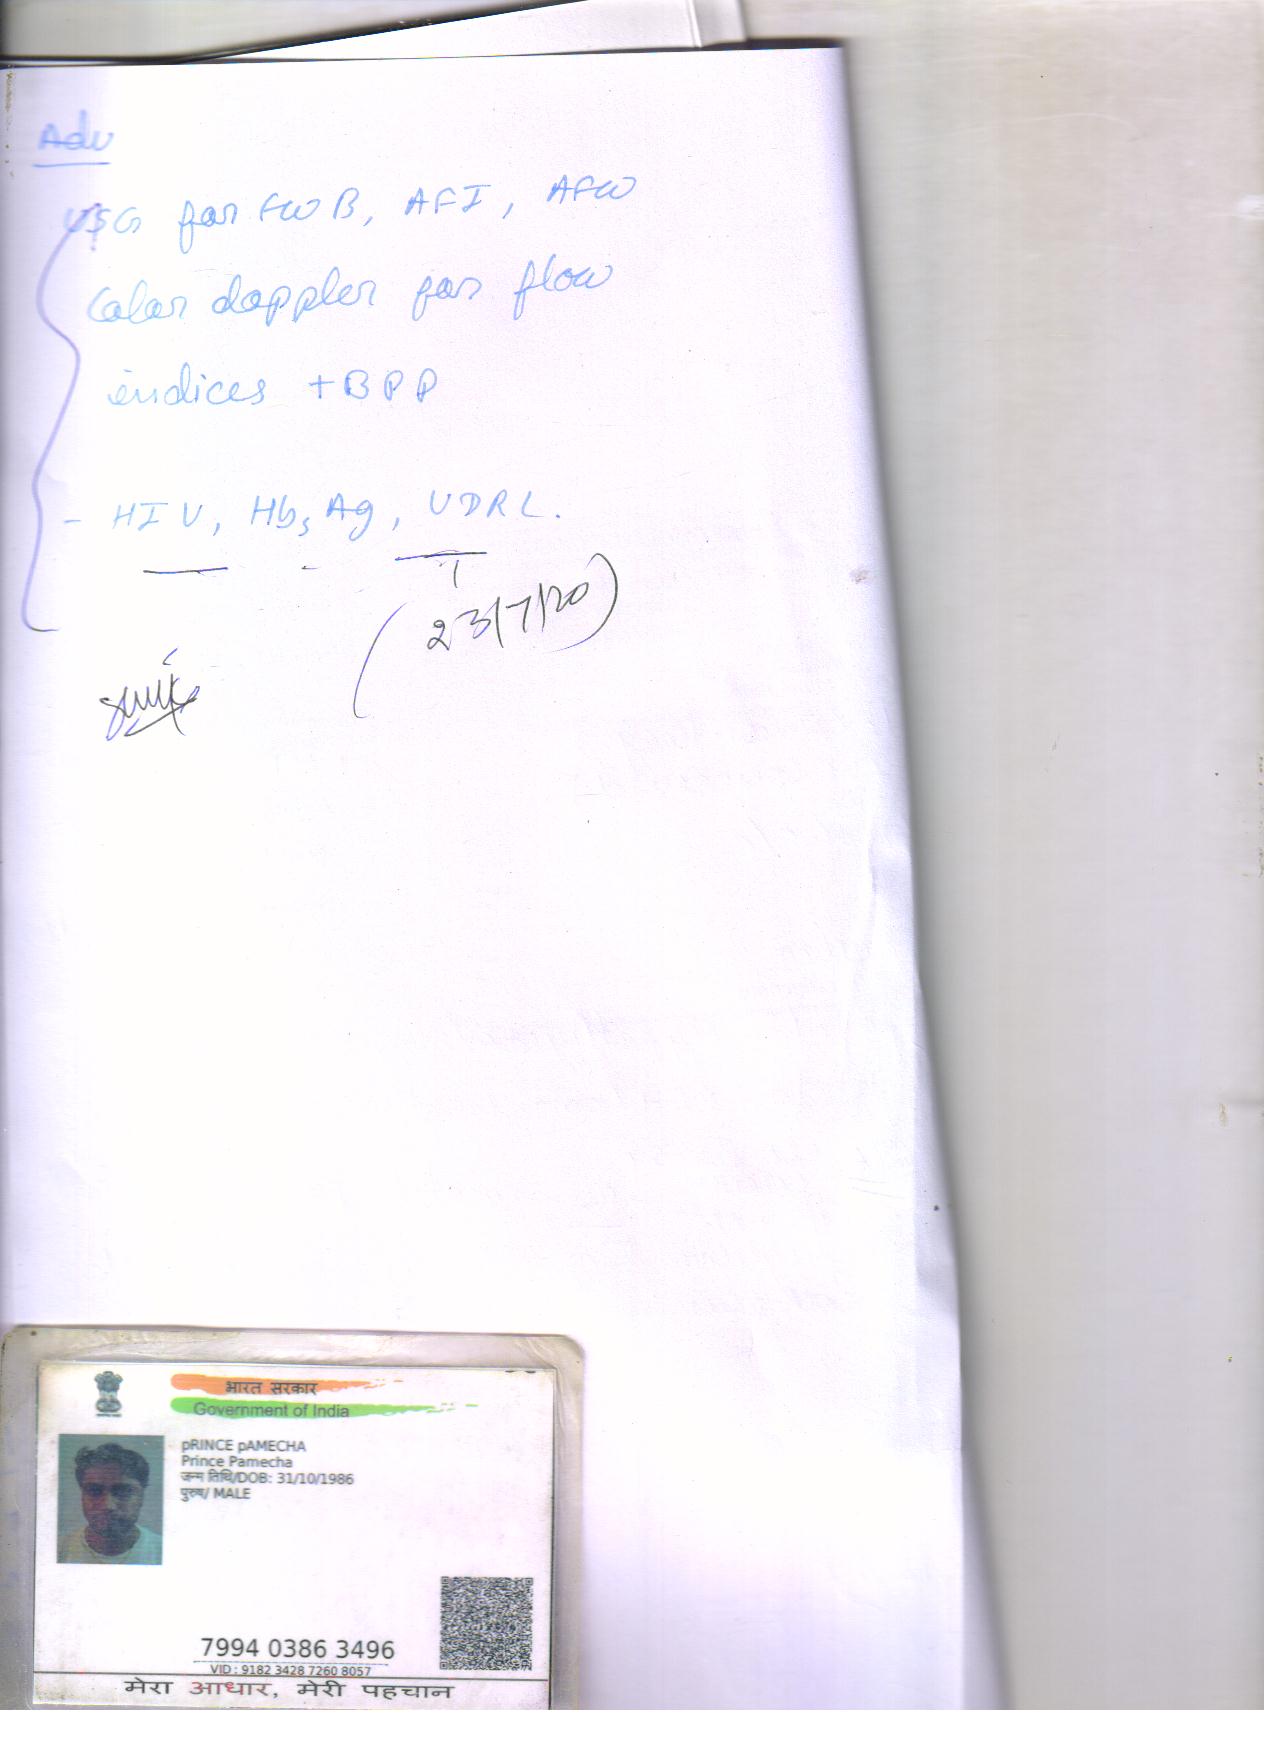 Adv
USG for FWB, AFI, AFW
Color doppler for flow
indices + BPP
- HIV, HbsAg, VDRL.
(23/7/20)
भारत सरकार
Government of India
pRINCE pAMECHA
Prince Pamecha
जन्म तिथि/DOB: 31/10/1986
पुरुष/ MALE
7994 0386 3496
VID : 9182 3428 7260 8057
मेरा आधार, मेरी पहचान